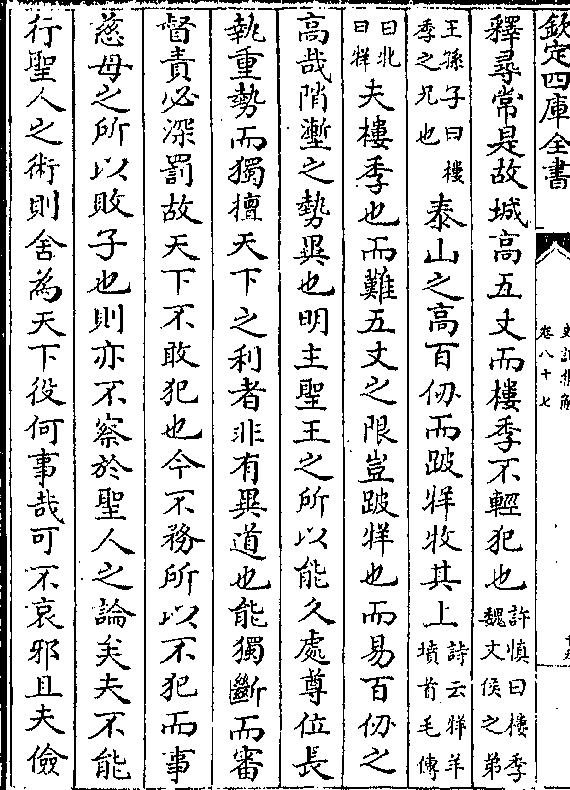 欽定四庫全書
史記集解
卷八十七
釋尋常是故城高五丈而樓季不輕犯也許慎曰樓季魏文侯之弟
王孫子曰樓季之兄也泰山之高百仞而跛牂牧其上詩云牂羊墳首毛傳
曰牝曰牂夫樓季也而難五丈之限豈跛牂也而易百仞之
高哉陗塹之勢異也明主聖王之所以能久處尊位長
執重勢而獨擅天下之利者非有異道也能獨斷而審
督責必深罰故天下不敢犯也今不務所以不犯而事
慈母之所以敗子也則亦不察於聖人之論矣夫不能
行聖人之術則舍為天下役何事哉可不哀邪且夫儉